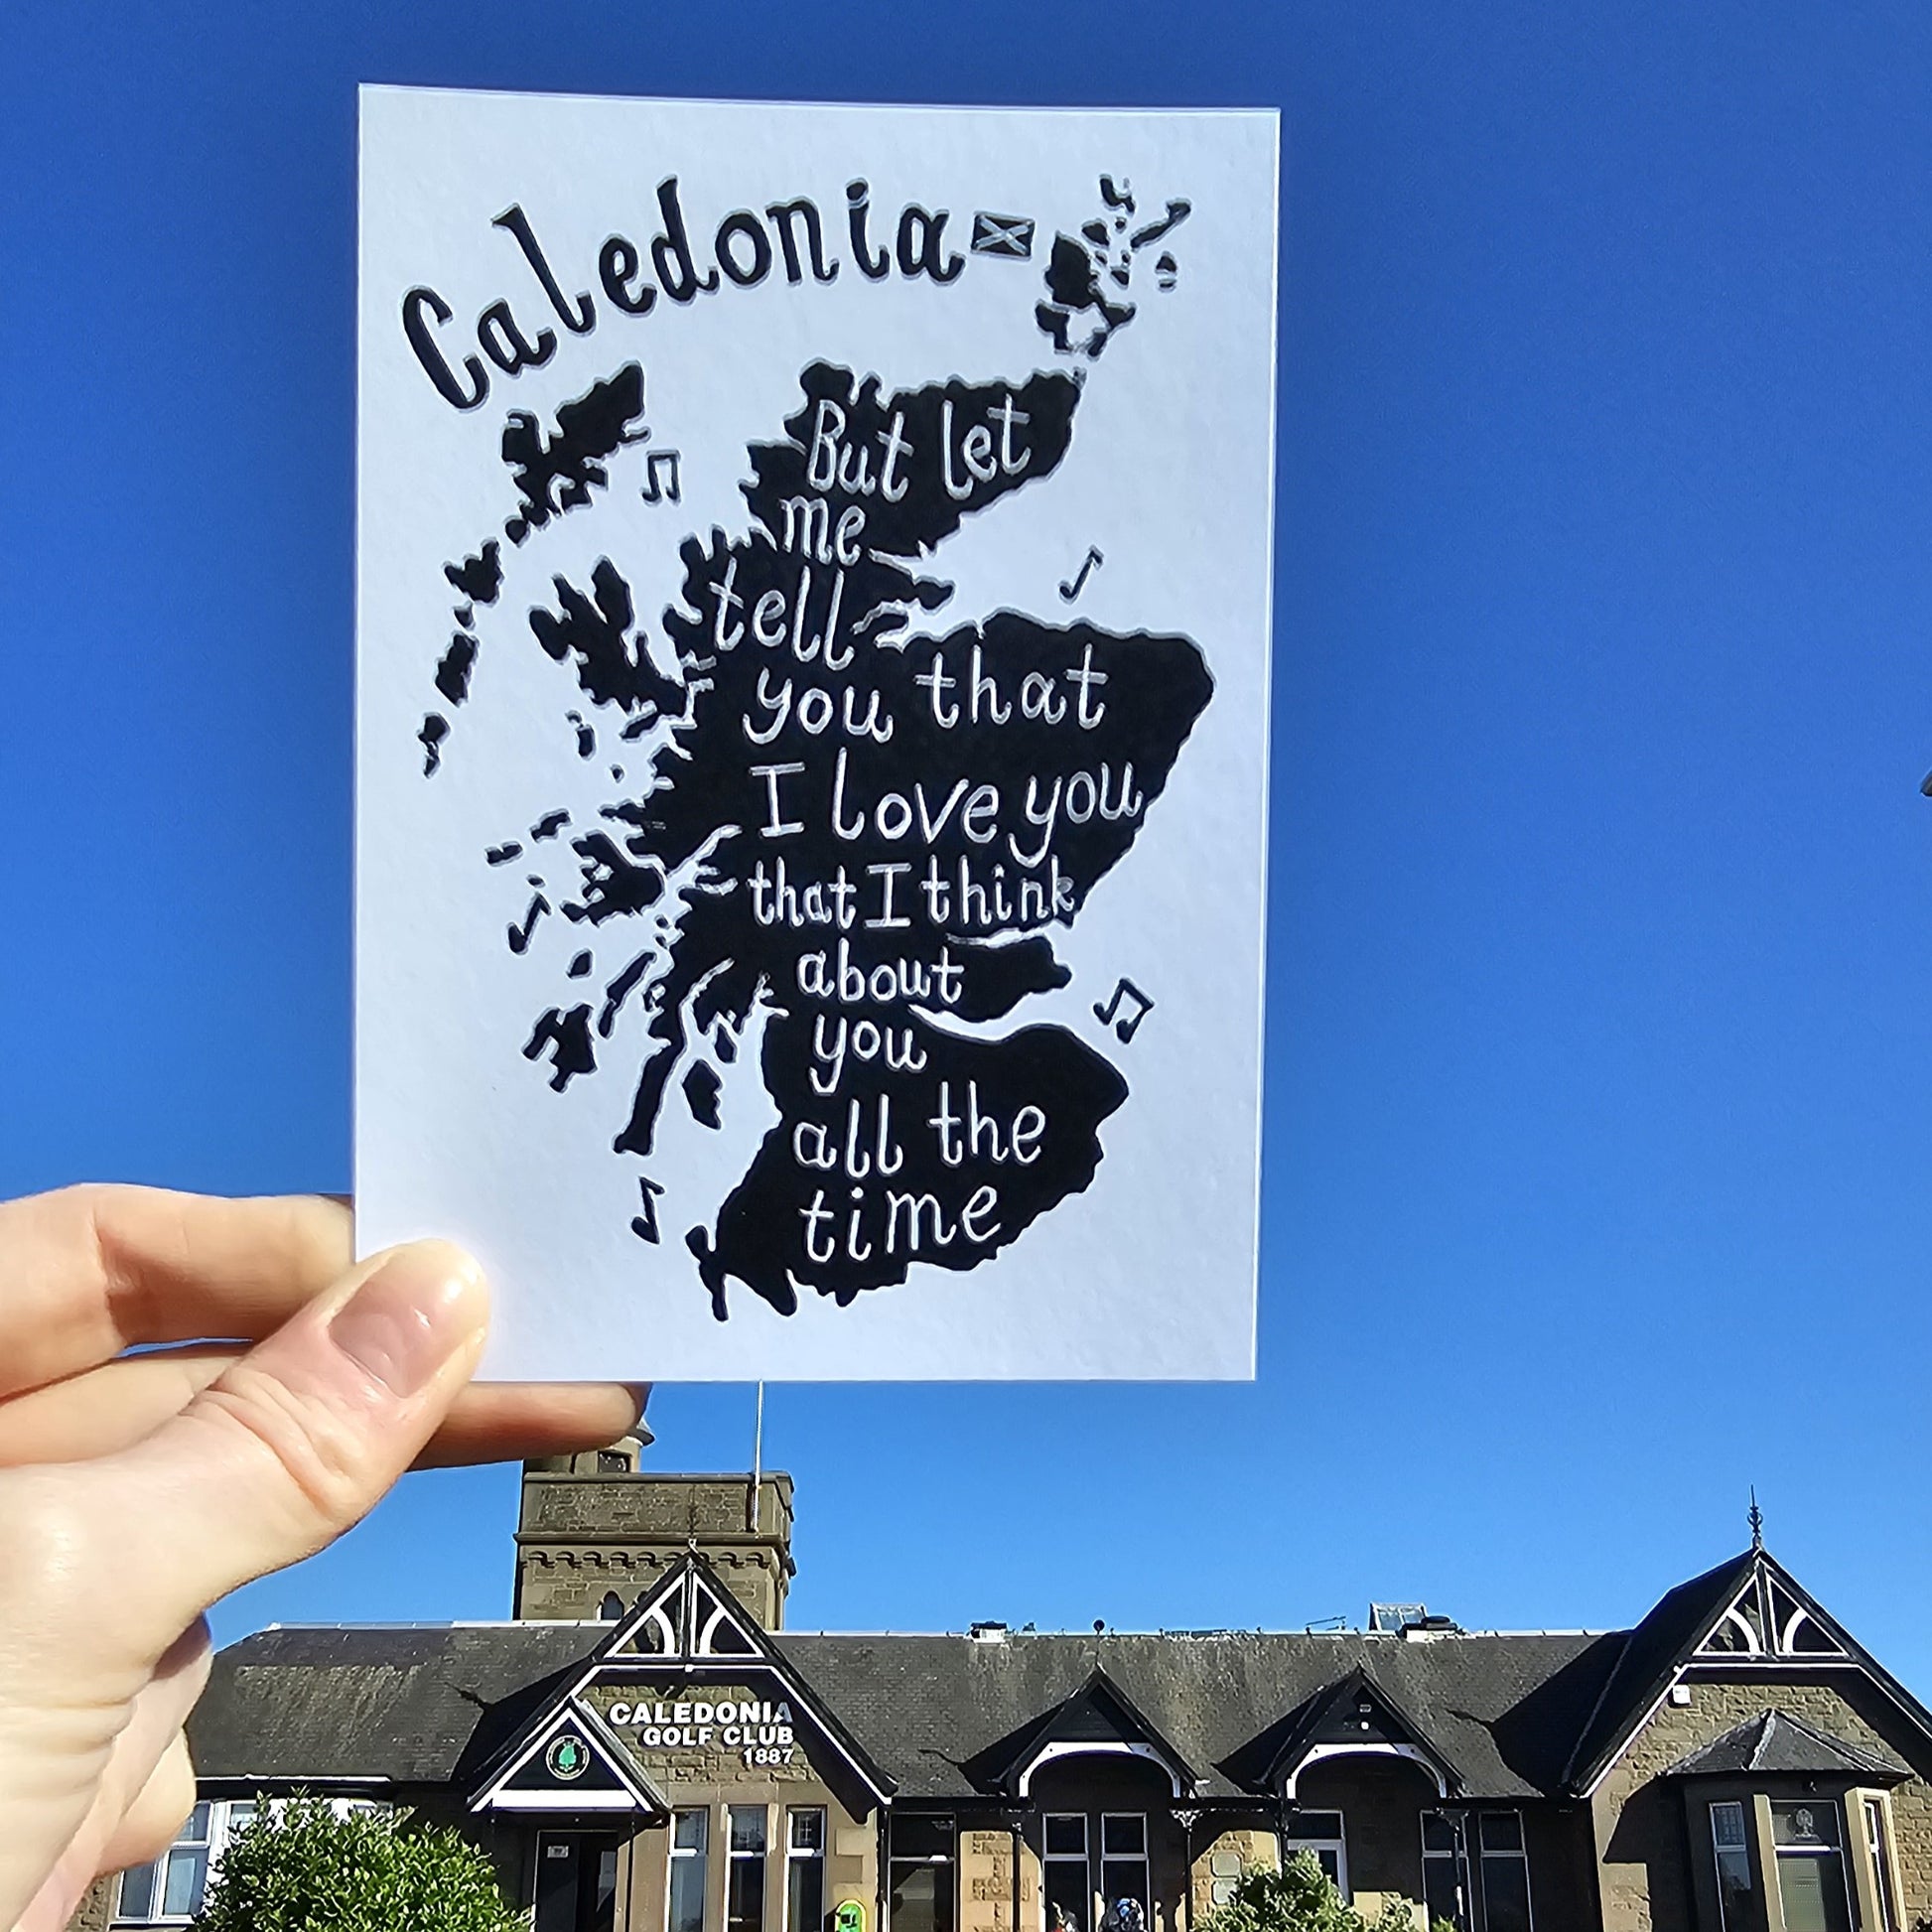 Caledonia
But let
me
tell
you that
I love you
that I think
about
you
all the
time
CALEDONIA
GOLF CLUB
1887